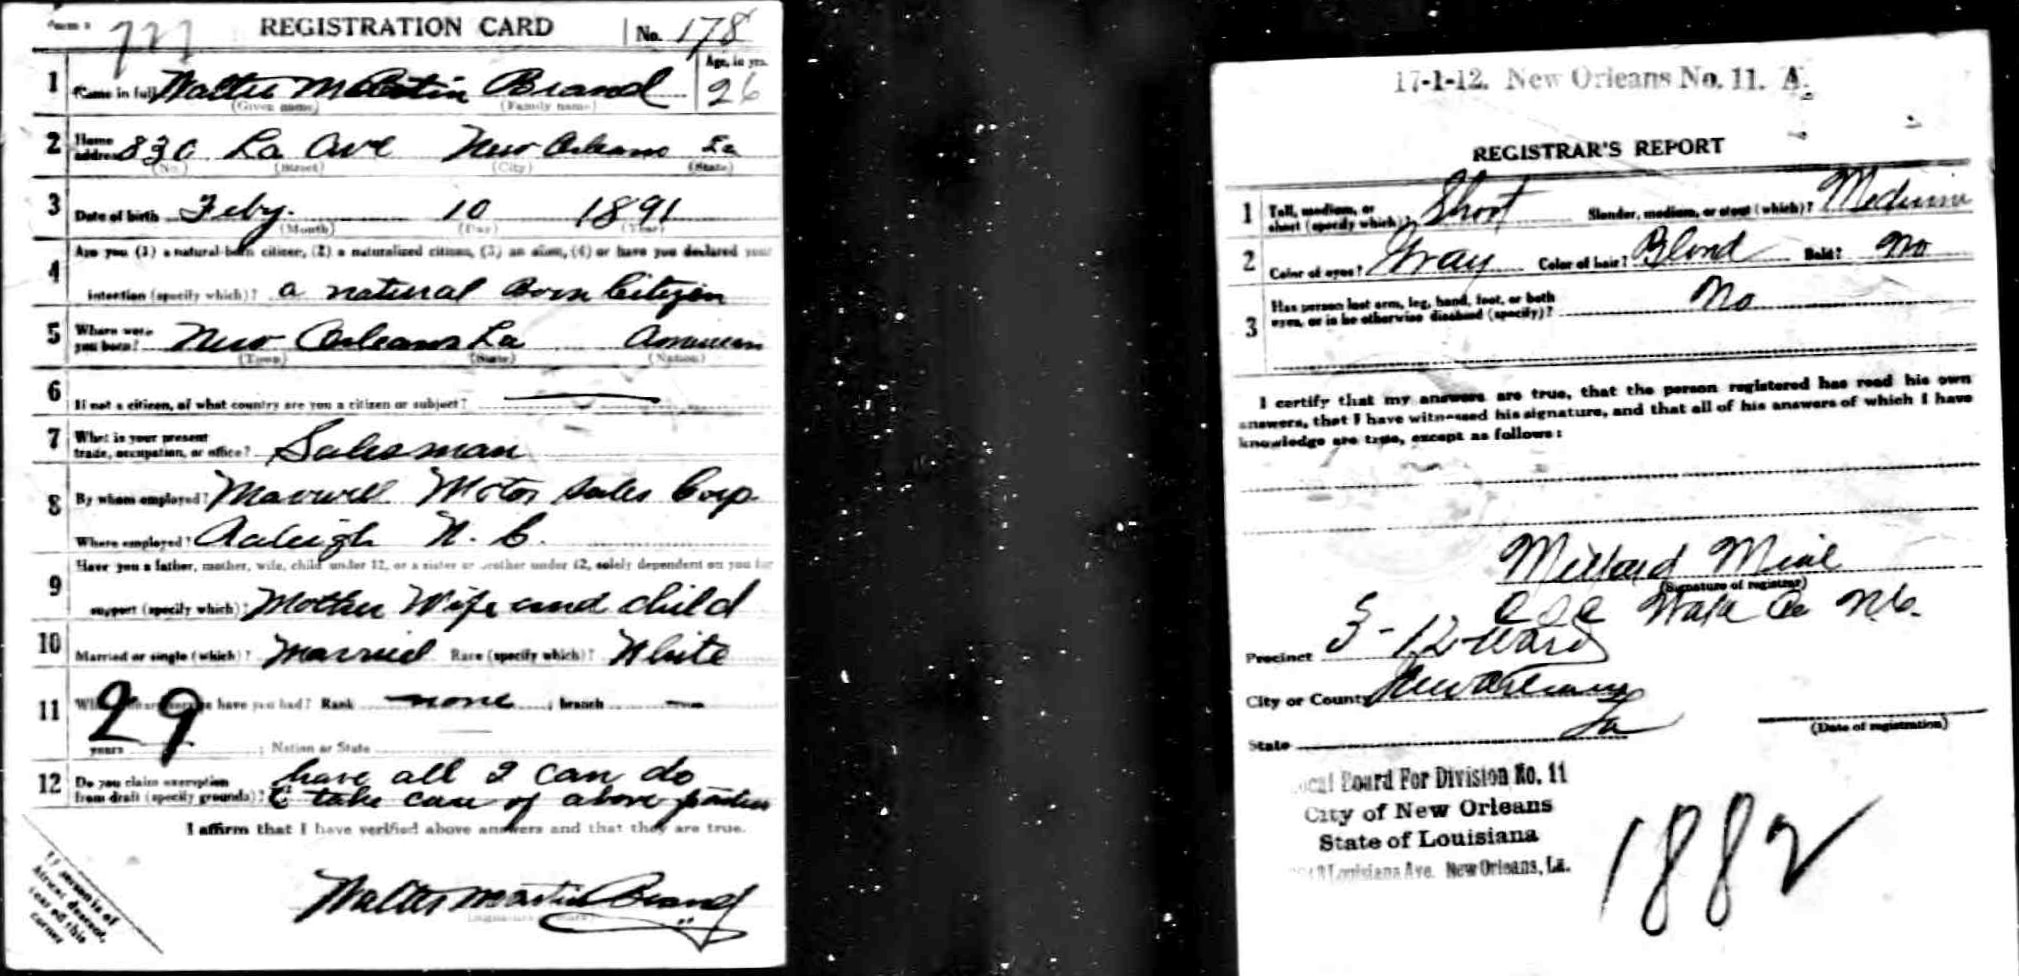 777 REGISTRATION CARD No. 178
1 Name in full Walter Martin Brand Age, in yrs. 26
(Given name) (Family name)
2 Home address 830 La Ave New Orleans La
(No.) (Street) (City) (State)
3 Date of birth Feby. 10 1891
(Month) (Day) (Year)
4 Are you (1) a natural-born citizen, (2) a naturalized citizen, (3) an alien, (4) or have you declared your
intention (specify which)? a natural Born Citizen
5 Where were you born? New Orleans La American
(Town) (State) (Nation)
6 If not a citizen, of what country are you a citizen or subject?
7 What is your present trade, occupation, or office? Salesman
8 By whom employed? Maxwell Motor Sales Corp
Where employed? Raleigh N. C.
9 Have you a father, mother, wife, child under 12, or a sister or brother under 12, solely dependent on you for
support (specify which)? Mother Wife and child
10 Married or single (which)? Married Race (specify which)? White
11 have you had? Rank none ; branch —
29
years ; Nation or State
12 Do you claim exemption from draft (specify grounds)? have all I can do
to take care of above parties
I affirm that I have verified above answers and that they are true.
Walter Martin Brand
If person is of
African descent,
tear off this
corner
17-1-12. New Orleans No. 11. A.
REGISTRAR'S REPORT
1 Tall, medium, or short (specify which)? Short Slender, medium, or stout (which)? Medium
2 Color of eyes? Gray Color of hair? Blond Bald? No
3 Has person lost arm, leg, hand, foot, or both eyes, or is he otherwise disabled (specify)? No
I certify that my answers are true, that the person registered has read his own
answers, that I have witnessed his signature, and that all of his answers of which I have
knowledge are true, except as follows:
Millard Mial
(Signature of registrar)
CSC Wake Co NC.
Precinct 3-12 Ward
City or County New Orleans
State La (Date of registration)
Local Board For Division No. 11
City of New Orleans
State of Louisiana
Louisiana Ave. New Orleans, La.
1882